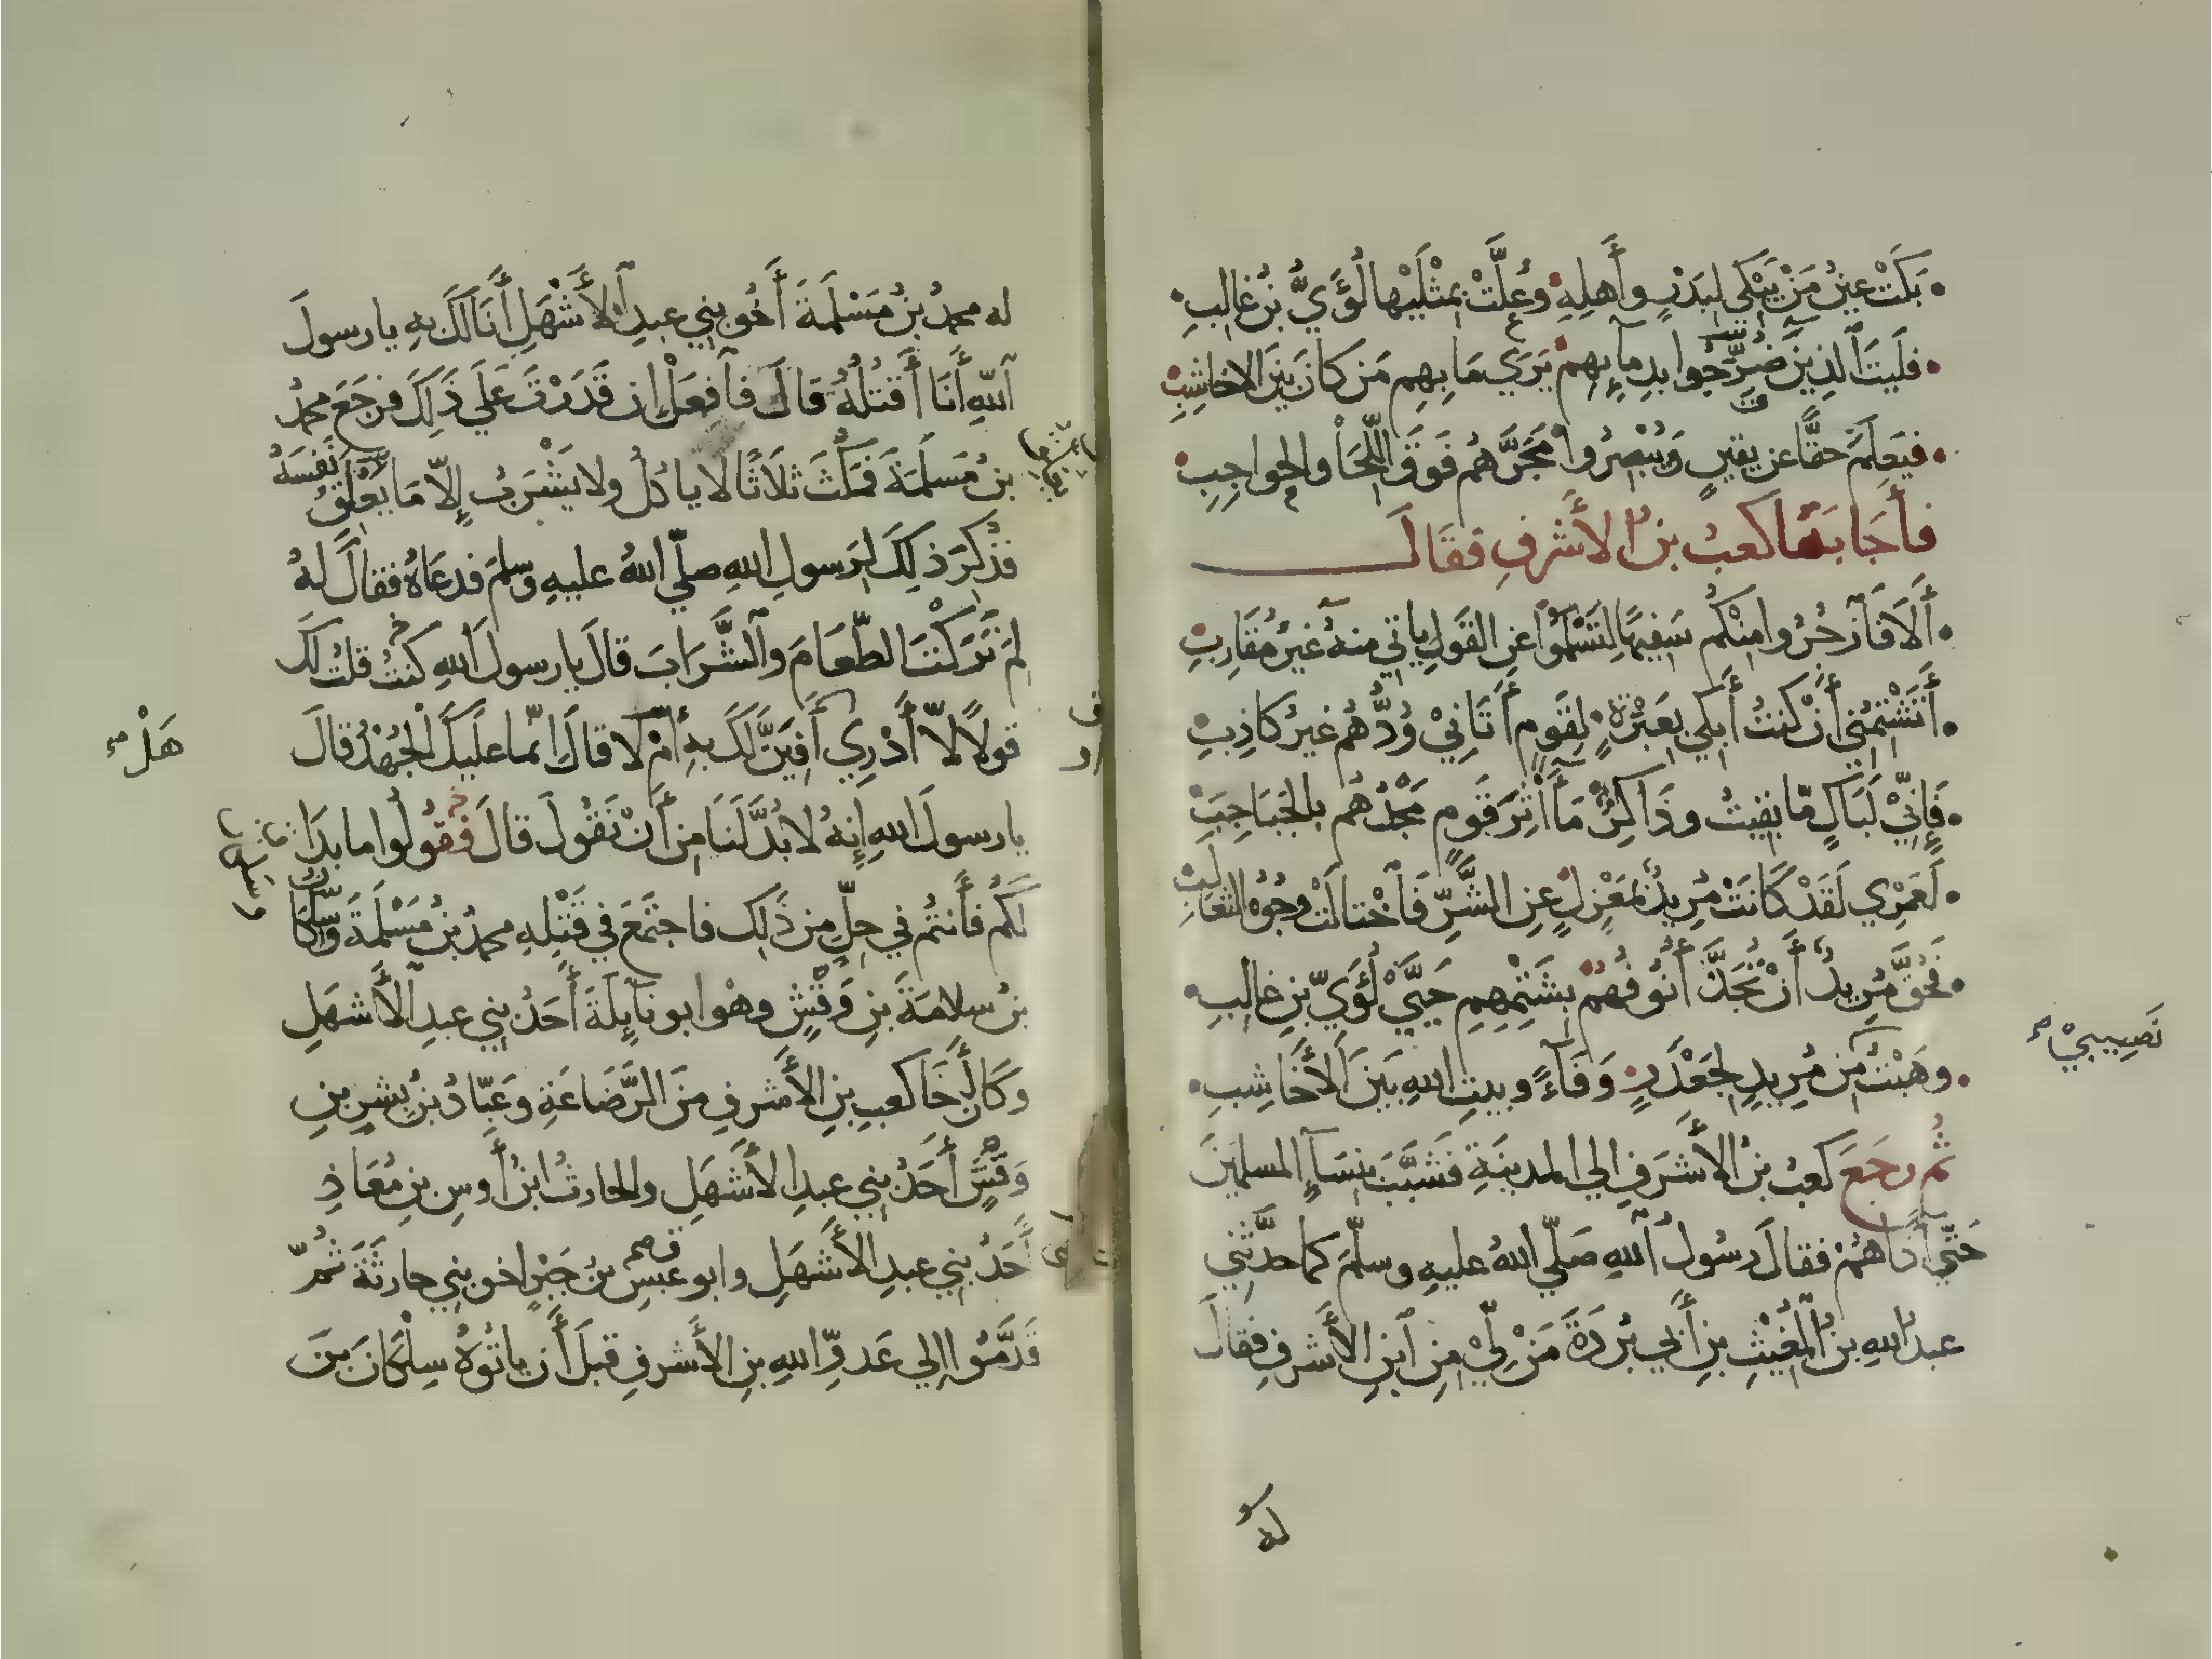 بَكَتْ عينُ مَنْ يَبْكي لِبَدْرٍ وأَهلِهِ وعُلَّتْ بِمِثْلَيْها لُؤَيُّ بنُ غالبِ
فلَيتَ ٱلذينَ ضُرِّجُوا بدِمآئِهِم يَرَي مَا بِهِم مَن كانَ بينَ الاخاشِبِ
فيَعلَمَ حقًّا عن يقينٍ وَيُبْصِرُوا مَجَرَّهُم فَوقَ اللِّحَا والحواجِبِ
فأَجَابَهَا كعبُ بنُ الأَشرفِ فقَالَ
أَلَا فَٱزجُرُوا مِنْكُم سَفِيهًا لِتَسْلَمُوا عنِ القَولِ ياتي منهُ غيرُ مُقَارِبِ
أَتَشْتِمُنِي أَنْ كنتُ أَبكي بِعَبْرَةٍ لِقَومٍ أَتَانِيْ وُدُّهُم غيرُ كاذِبِ
فَإِنِّيْ لَبَاكٍ مّا بقِيتُ وذَاكِرٌ مَآثِرَ قَومٍ مَجْدُهُم بالجَبَاجِبَِ
لَعَمْرِي لَقَدْ كَانَتْ مُرِيدٌ بمَعْزِلٍ عنِ الشَّرِّ فَٱخْتالَتْ وجُوهُ الثعَالِبِ
فَحُقَّ مُرِيدٌ أَنْ تُجَذَّ أُنُوفُهُم بِشَتْمِهِمِ حَيَّيْ لُؤَيِّ بنِ غالبِ
وهَبْتُ نَصِيبِيْ مِن مُرِيدٍ لِجَعْدَرٍ وَفَآءً وبيتِ اللهِ بَينَ الأَخَاشِبِ
ثُم رجَعَ كعبُ بنُ الأَشرَفِ الي المدينَةِ فَشَبَّبَ بنِسَآءِ المسلمينَ
حَتّي أَذَاهُمْ فقالَ رسُولُ ٱللهِ صَلّي اللهُ عليهِ وسلّمَ كما حدَّثَنِي
عبدُ اللهِ بنُ ٱلْمُغِيثِ بنِ أَبي بُرْدَةَ مَنْ لِيْ مِنِ ٱبنِ الأَشرفِ فقالَ
له محمدُ بنُ مَسْلَمَةَ أَخُو بني عبدِ ٱلأَشْهَلِ أَنَا لَكَ بهِ يا رسولَ
ٱللهِ أَنَا أَقتُلُهُ قالَ فَٱفعَلْ إن قَدَرْتَ عَلَي ذَلِكَ فرجَعَ محمدُ
بنُ مَسلَمَةَ فمَكَثَ ثلاَثًا لا ياكلُ ولا يَشْرَبُ إِلاّ مَا يُعْلِقُ نَفسَهُ
فذُكِرَ ذلِكَ لِرَسولِ اللهِ صلّي اللهُ عليهِ وسلمَ فدعَاهُ فقالَ لهُ
لِمَ تَرَكْتَ الطّعَامَ وٱلشَّرَابَ قالَ يا رسولَ اللهِ كنتُ قلتُ لَكَ
قولاً لاّ أَدْرِي أَفِيَنَّ لَكَ بهِ أَمْ لا قالَ انّما عليكَ ٱلْجُهْدُ قالَ
هَلْ
يا رسولَ اللهِ إِنهُ لا بُدَّ لَنَا مِن أَنْ نَقُولَ قالَ فقُولُوا ما بدَا
لَكُم فأَنتُم في حِلٍّ مِن ذَلِك فاجتَمَعَ في قَتْلِهِ محمدُ بنُ مَسْلَمَةَ وسِلْكَانُ
بنُ سلامَةَ بنِ وَقْشٍ وهْوا ابو نآئِلَةَ أَحَدُ بني عبدِ ٱلأَشهَلِ
وكَانَ أَخَا كعبِ بنِ الأَشرفِ مِنَ الرَّضَاعَةِ وعَبّادُ بنُ بِشرِ بنِ
وَقْشٍ أَحَدُ بني عبدِ الأَشهَلِ والحارثُ ابنُ أَوسِ بنِ مُعَاذٍ
أَحَدُ بني عبدِ الأَشهَلِ وابو عَبسِ بنُ جَبْرٍ اخو بني حارثَةَ ثُمَّ
قَدَّمُوا إلي عَدوِّ اللهِ بنِ الأَشرفِ قبلَ أَن ياتُوهُ سِلْكَانَ بنَ